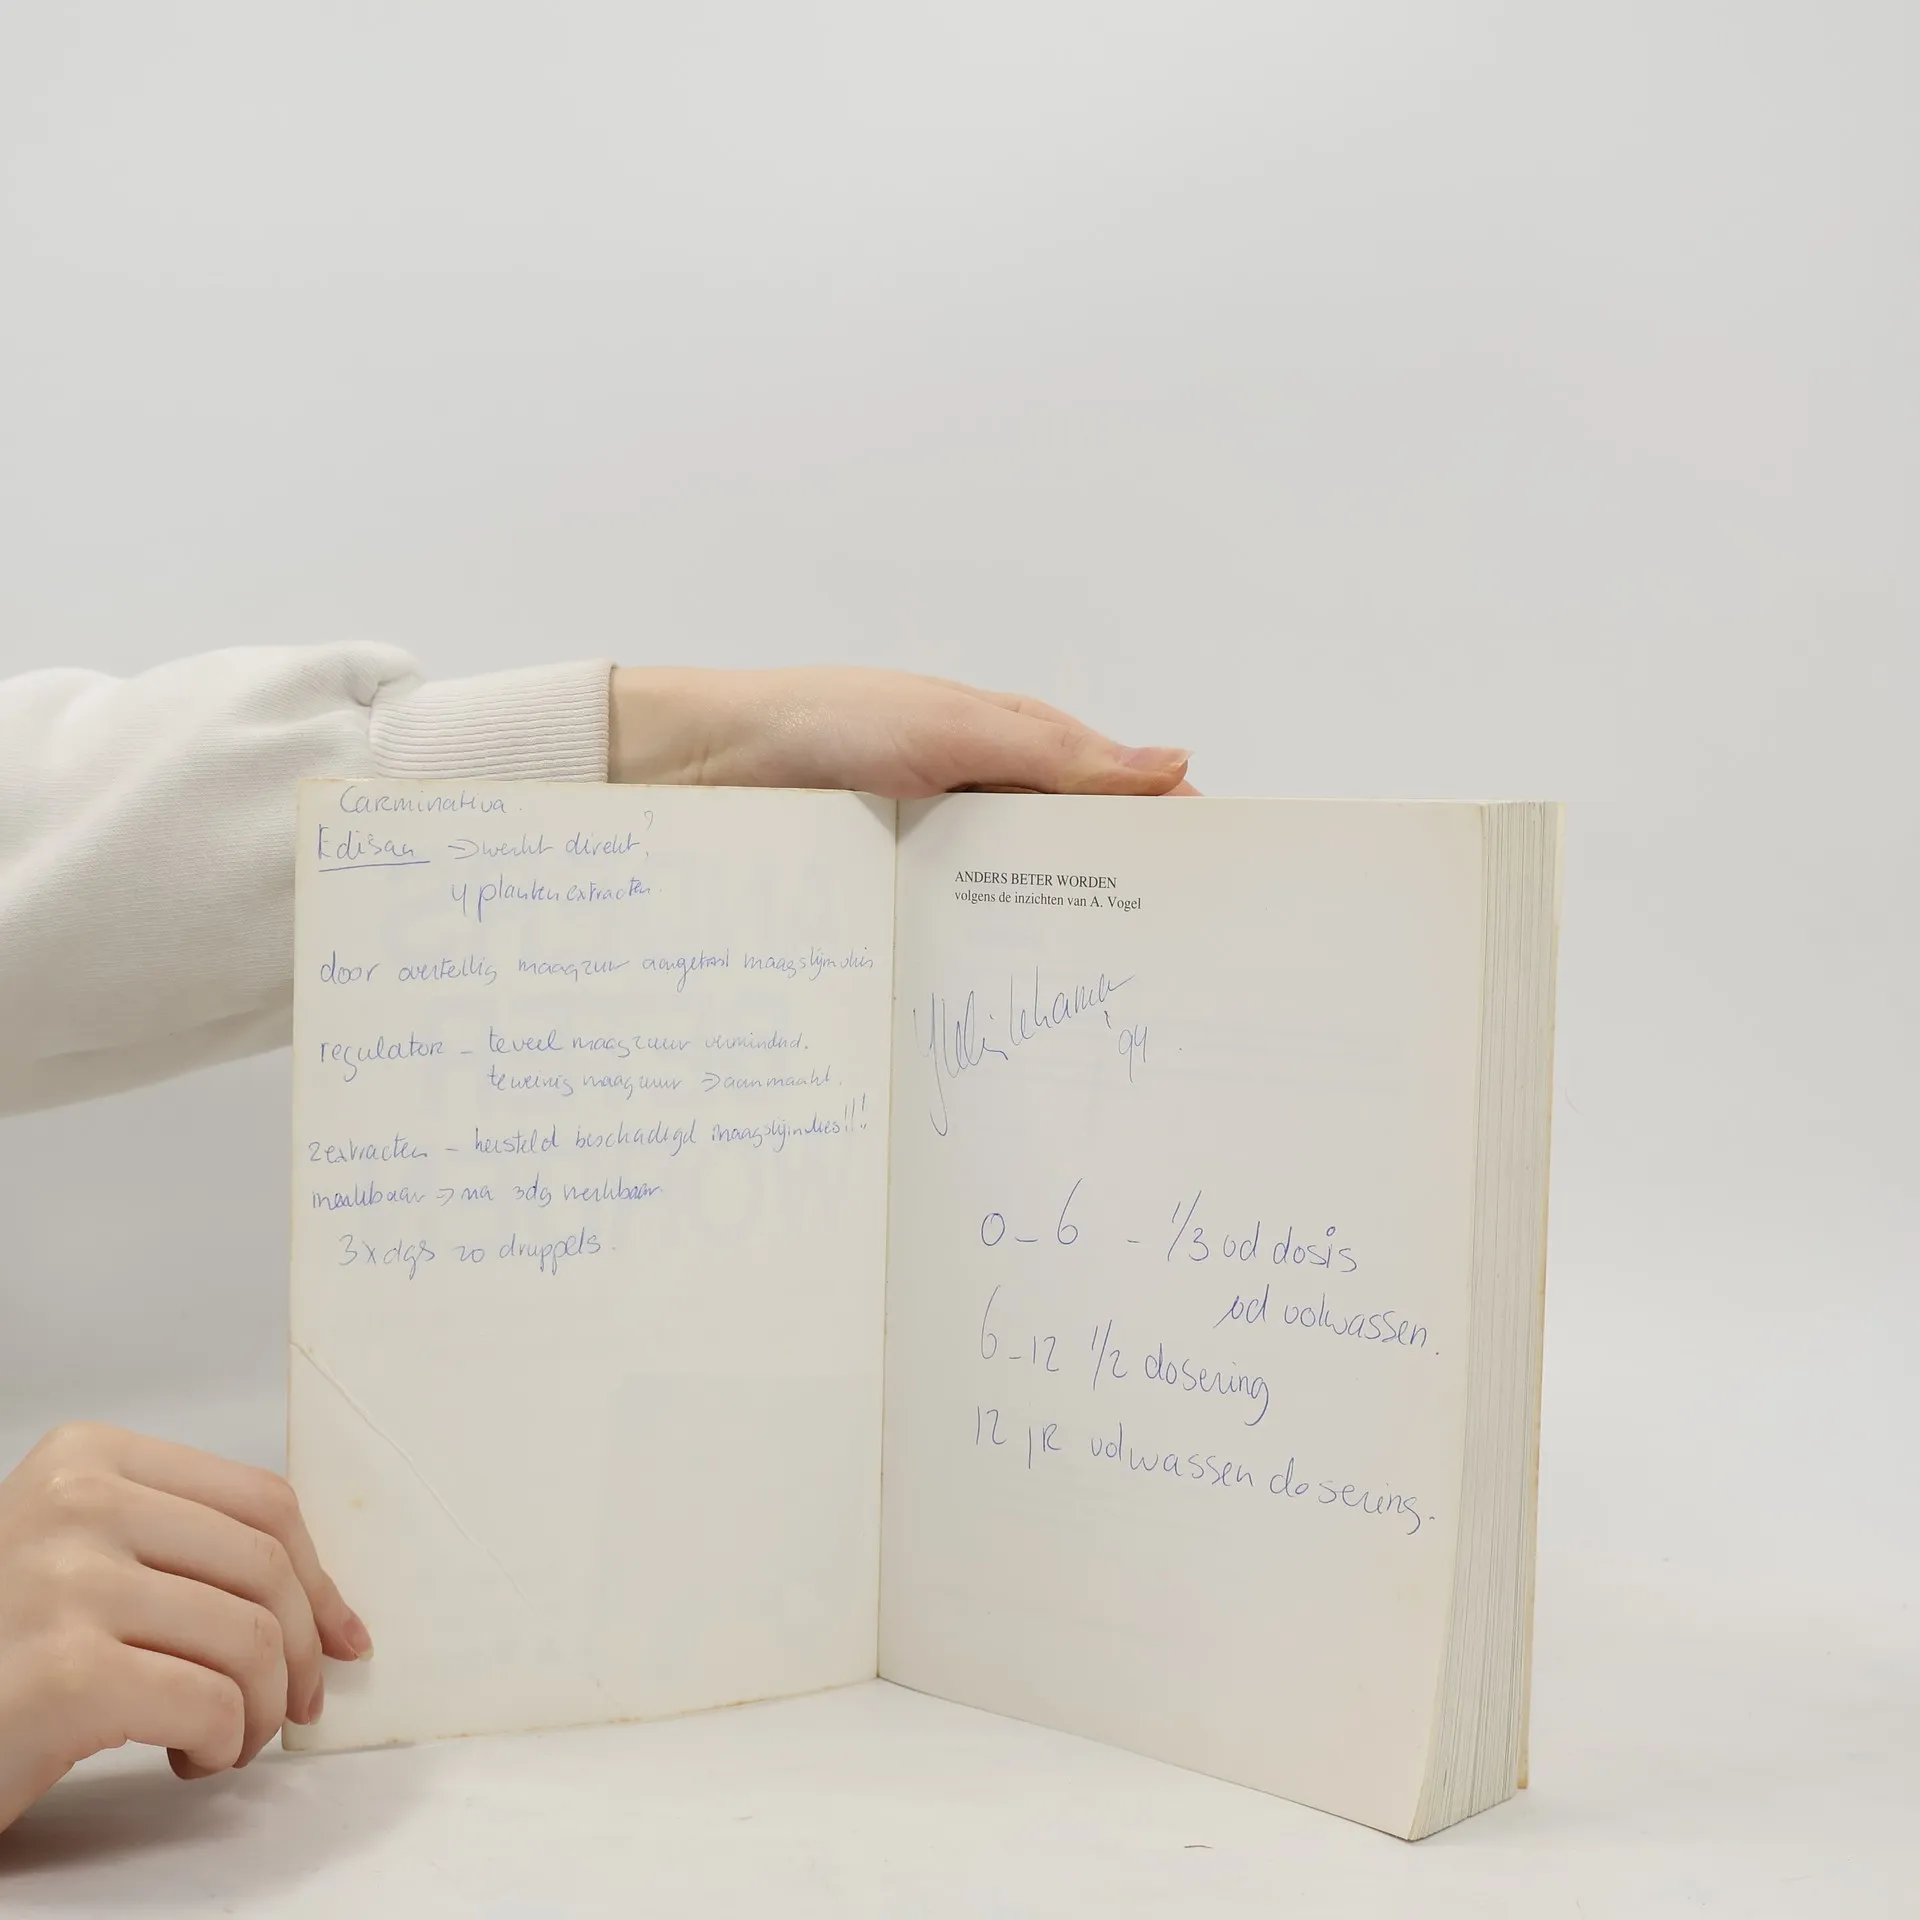 Carminativa.
Edisan → werkt direkt?
4 planten extracten.
door overtollig maagzuur aangetast maagslijmvlies
regulator – teveel maagzuur verminderd.
te weinig maagzuur → aanmaakt.
2 extracten – hersteld beschadigd maagslijmvlies!!!
merkbaar → na 3dg merkbaar.
3x dgs 20 druppels.
ANDERS BETER WORDEN
volgens de inzichten van A. Vogel
'94.
0–6 – 1/3 vd dosis
vd volwassen.
6–12 1/2 dosering
12 jR volwassen dosering.